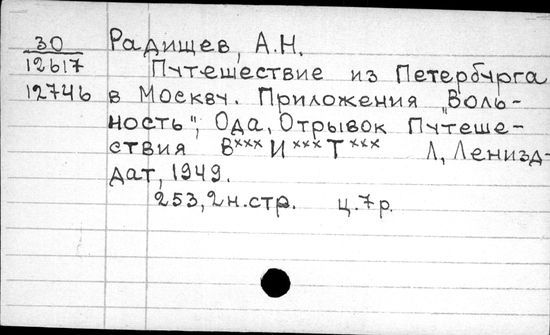 30 Радищев, А.Н.
12617 Путешествие из Петербурга
12746 в Москву. Приложения „Воль-
ность", Ода, Отрывок Путеше-
ствия в××× И ××× Т ××× Л, Лениздд-
дат, 1949.
253, 2 н. стр. ц. 7 р.